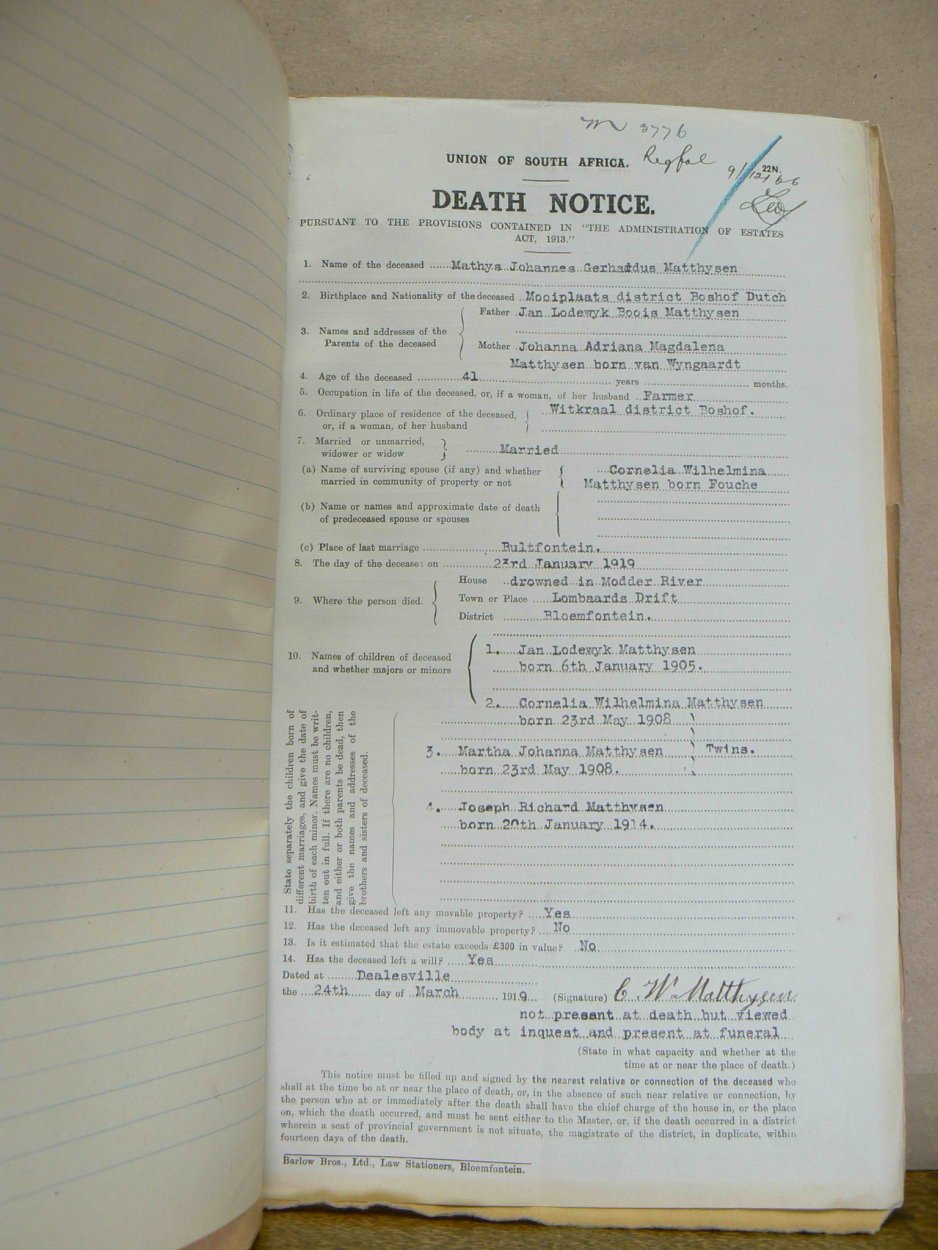 m 3776
UNION OF SOUTH AFRICA.
22N.
DEATH NOTICE.
PURSUANT TO THE PROVISIONS CONTAINED IN "THE ADMINISTRATION OF ESTATES
ACT, 1913."
1. Name of the deceased Mathys Johannes Gerhardus Matthysen
2. Birthplace and Nationality of the deceased Mooiplaats district Boshof Dutch
3. Names and addresses of the Parents of the deceased
Father Jan Lodewyk Roois Matthysen
Mother Johanna Adriana Magdalena
Matthysen born van Wyngaardt
4. Age of the deceased 41 years months.
5. Occupation in life of the deceased, or, if a woman, of her husband Farmer
6. Ordinary place of residence of the deceased, Witkraal district Boshof.
or, if a woman, of her husband
7. Married or unmarried,
widower or widow Married
(a) Name of surviving spouse (if any) and whether Cornelia Wilhelmina
married in community of property or not Matthysen born Fouche
(b) Name or names and approximate date of death
of predeceased spouse or spouses
(c) Place of last marriage Bultfontein.
8. The day of the decease: on 23rd January 1919
9. Where the person died.
House drowned in Modder River
Town or Place Lombaards Drift
District Bloemfontein.
10. Names of children of deceased
and whether majors or minors
1. Jan Lodewyk Matthysen
born 6th January 1905.
2. Cornelia Wilhelmina Matthysen
born 23rd May 1908
3. Martha Johanna Matthysen Twins.
born 23rd May 1908.
4. Joseph Richard Matthysen
born 20th January 1914.
State separately the children born of
different marriages, and give the date of
birth of each minor. Names must be writ-
ten out in full. If there are no children,
and either or both parents be dead, then
give the names and addresses of the
brothers and sisters of deceased.
11. Has the deceased left any movable property? Yes
12. Has the deceased left any immovable property? No
13. Is it estimated that the estate exceeds £300 in value? No
14. Has the deceased left a will? Yes
Dated at Dealesville
the 24th day of March 1919 (Signature) C. W. Matthysen
not present at death but viewed
body at inquest and present at funeral
(State in what capacity and whether at the
time at or near the place of death.)
This notice must be filled up and signed by the nearest relative or connection of the deceased who
shall at the time be at or near the place of death, or, in the absence of such near relative or connection, by
the person who at or immediately after the death shall have the chief charge of the house in, or the place
on, which the death occurred, and must be sent either to the Master, or, if the death occurred in a district
wherein a seat of provincial government is not situate, the magistrate of the district, in duplicate, within
fourteen days of the death.
Barlow Bros., Ltd., Law Stationers, Bloemfontein.